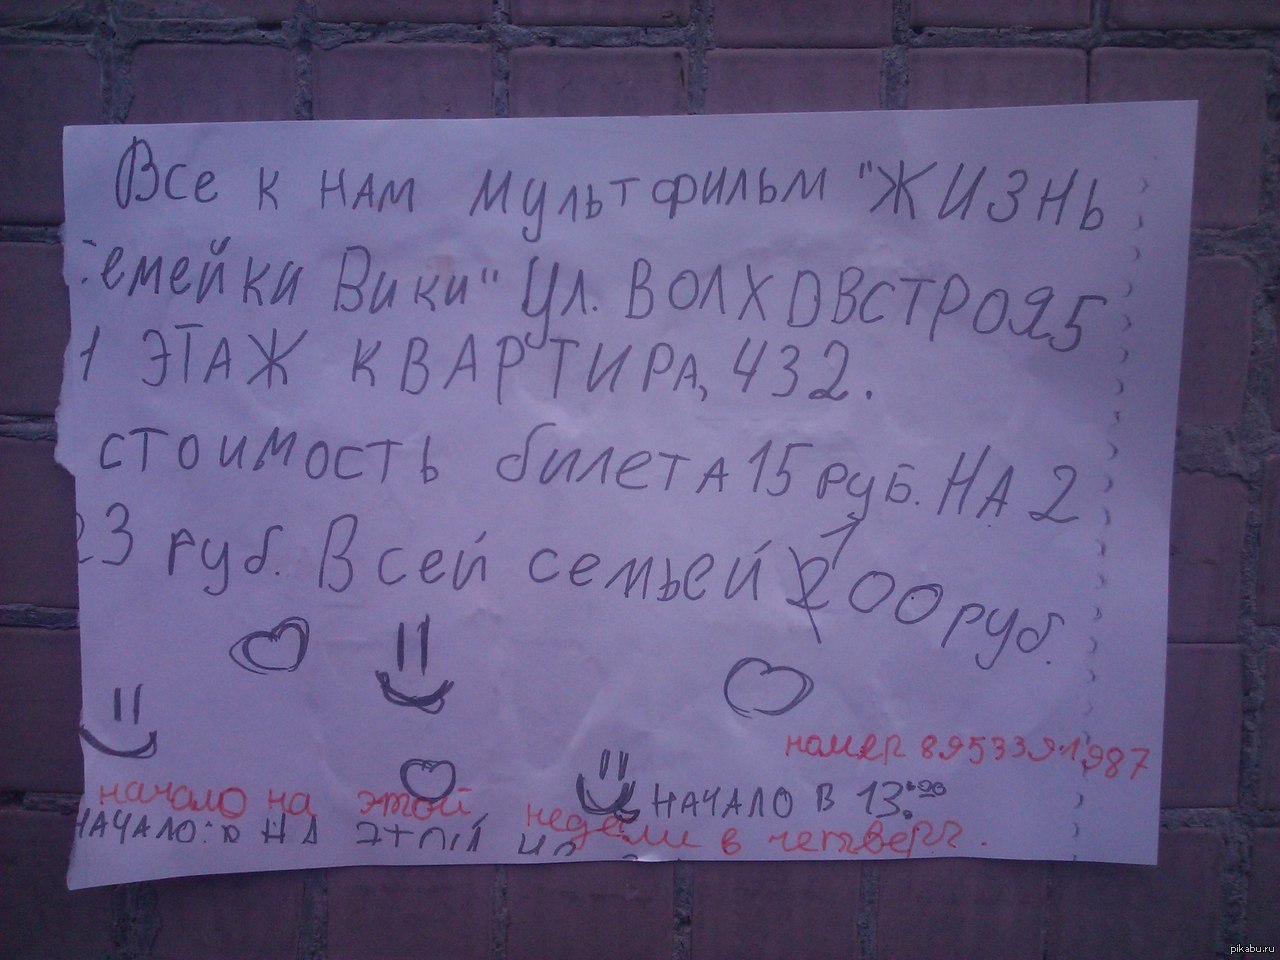 Все к нам мультфильм "ЖИЗНЬ
семейки Вики" Ул. ВОЛХОВСТРОЯ5
1 ЭТАЖ КВАРТИРА, 432.
СТОИМОСТЬ билета 15 руб. НА 2
23 руб. Всей семьей 100 руб.
номер 8953391987
НАЧАЛО В 13.00
начало на этой недели в четверг.
НАЧАЛО: НА ЭТОЙ
pikabu.ru